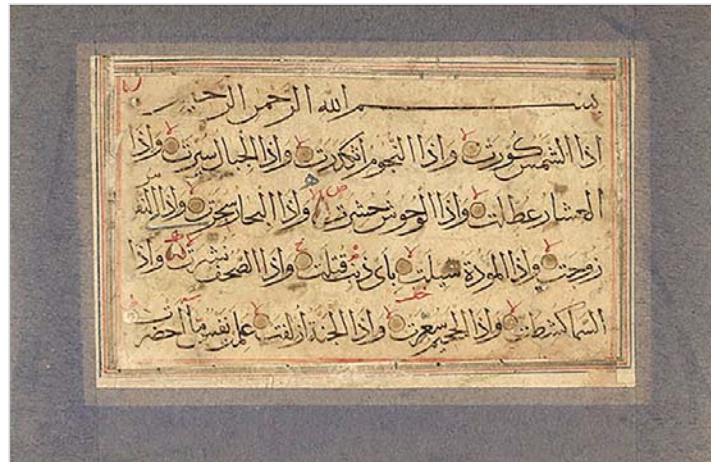 بسم الله الرحمن الرحيم
اذا الشمس كورت واذا النجوم انكدرت واذا الجبال سيرت واذا
العشار عطلت واذا الوحوش حشرت واذا البحار سجرت واذا النفو
زوجت واذا الموؤدة سيلت باى ذنب قتلت واذا الصحف نشرت واذا
السما كشطت واذا الجحيم سعرت واذا الجنة ازلفت علمت نفس ما احضرت